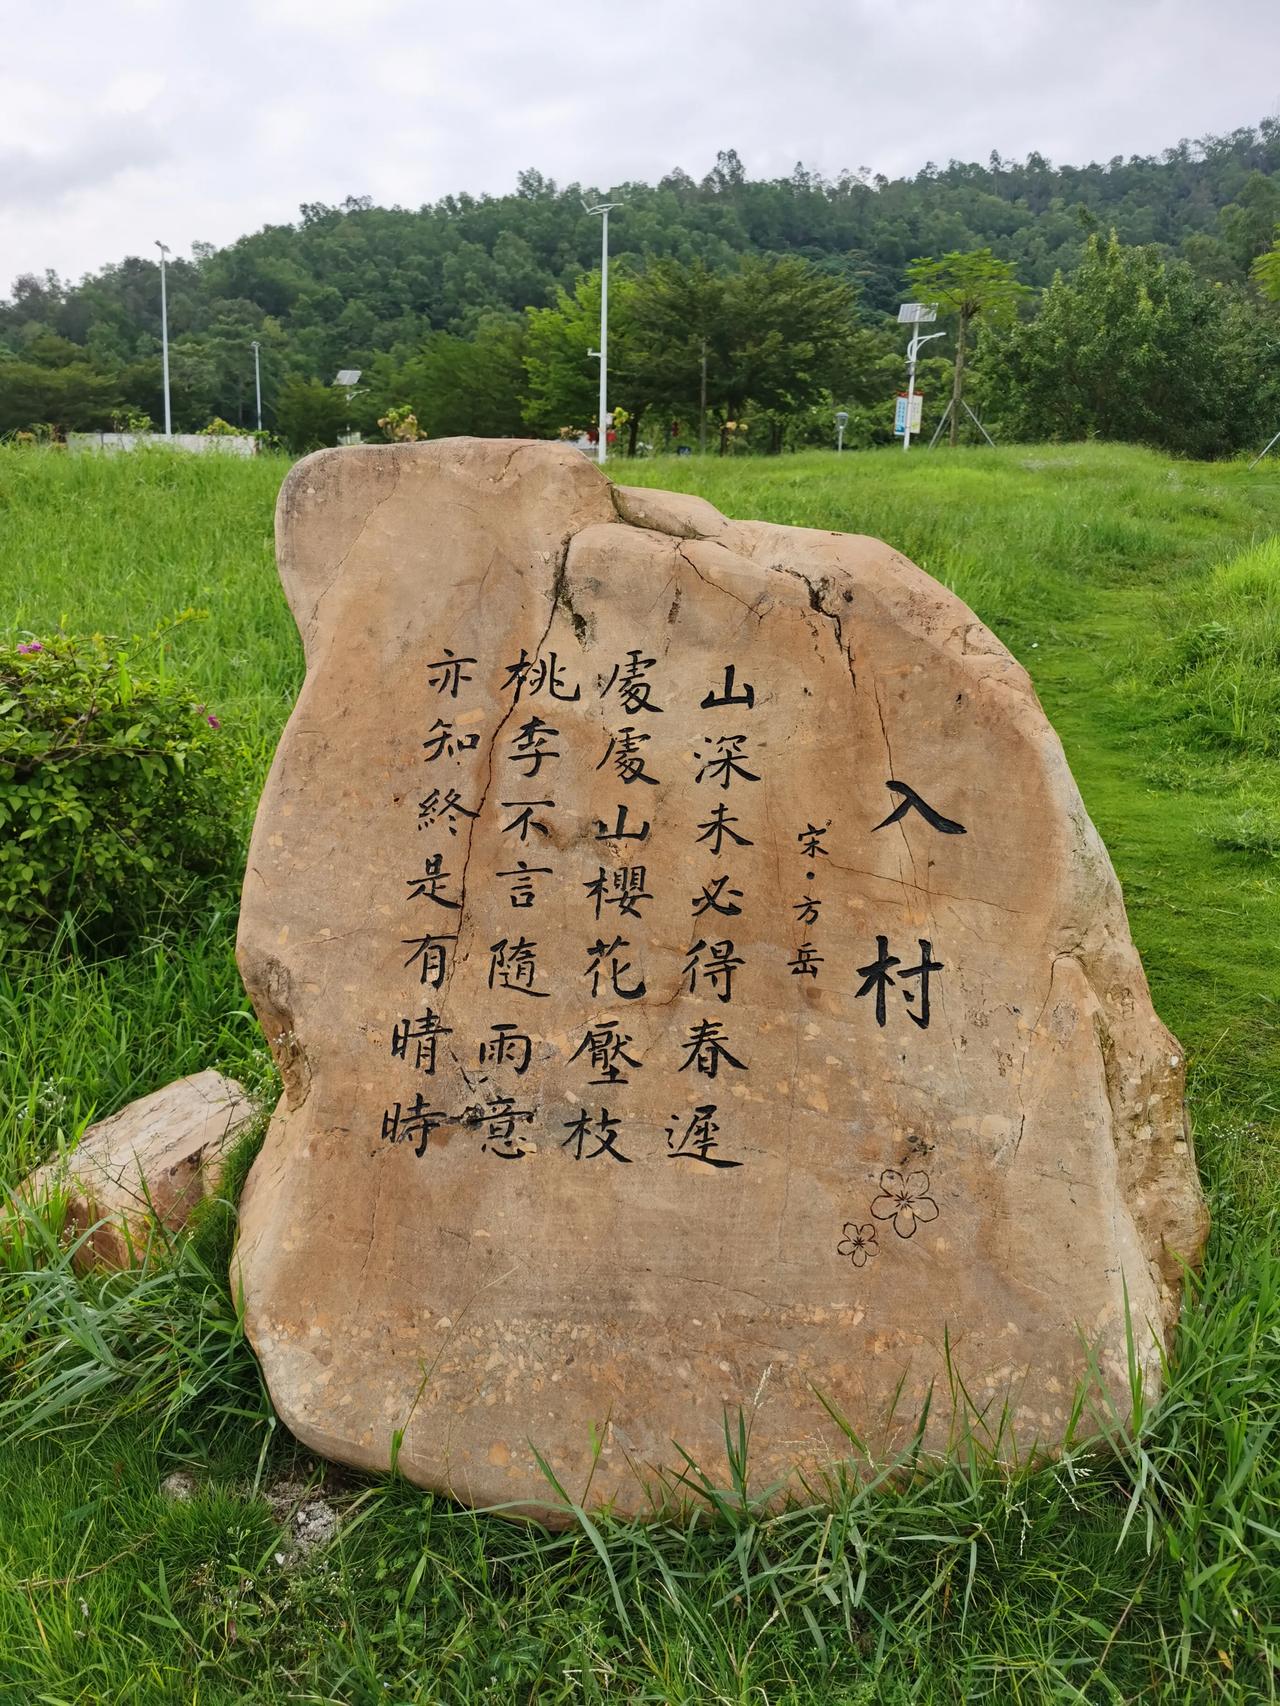 入村
宋·方岳
山深未必得春遲
處處山櫻花壓枝
桃李不言隨雨意
亦知終是有晴時